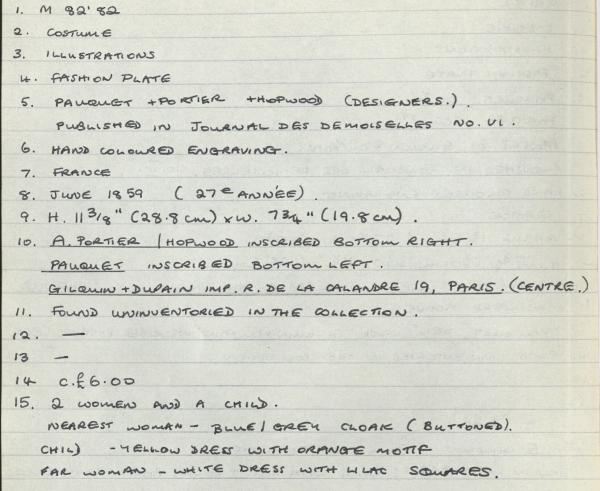 1. M 82'82
2. COSTUME
3. ILLUSTRATIONS
4. FASHION PLATE
5. PAUQUET + PORTIER + HOPWOOD (DESIGNERS.).
PUBLISHED IN JOURNAL DES DEMOISELLES NO. VI.
6. HAND COLOURED ENGRAVING.
7. FRANCE
8. JUNE 1859 (27e ANNÉE).
9. H. 11 3/8" (28.8 cm) x W. 7 3/4" (19.8 cm).
10. A. PORTIER / HOPWOOD INSCRIBED BOTTOM RIGHT.
PAUQUET INSCRIBED BOTTOM LEFT.
GILQUIN + DUPAIN IMP. R. DE LA CALANDRE 19, PARIS. (CENTRE.)
11. FOUND UNINVENTORIED IN THE COLLECTION.
12. —
13 —
14 C.£6.00
15. 2 WOMEN AND A CHILD.
NEAREST WOMAN - BLUE/GREY CLOAK (BUTTONED).
CHILD - YELLOW DRESS WITH ORANGE MOTIF
FAR WOMAN - WHITE DRESS WITH LILAC SQUARES.